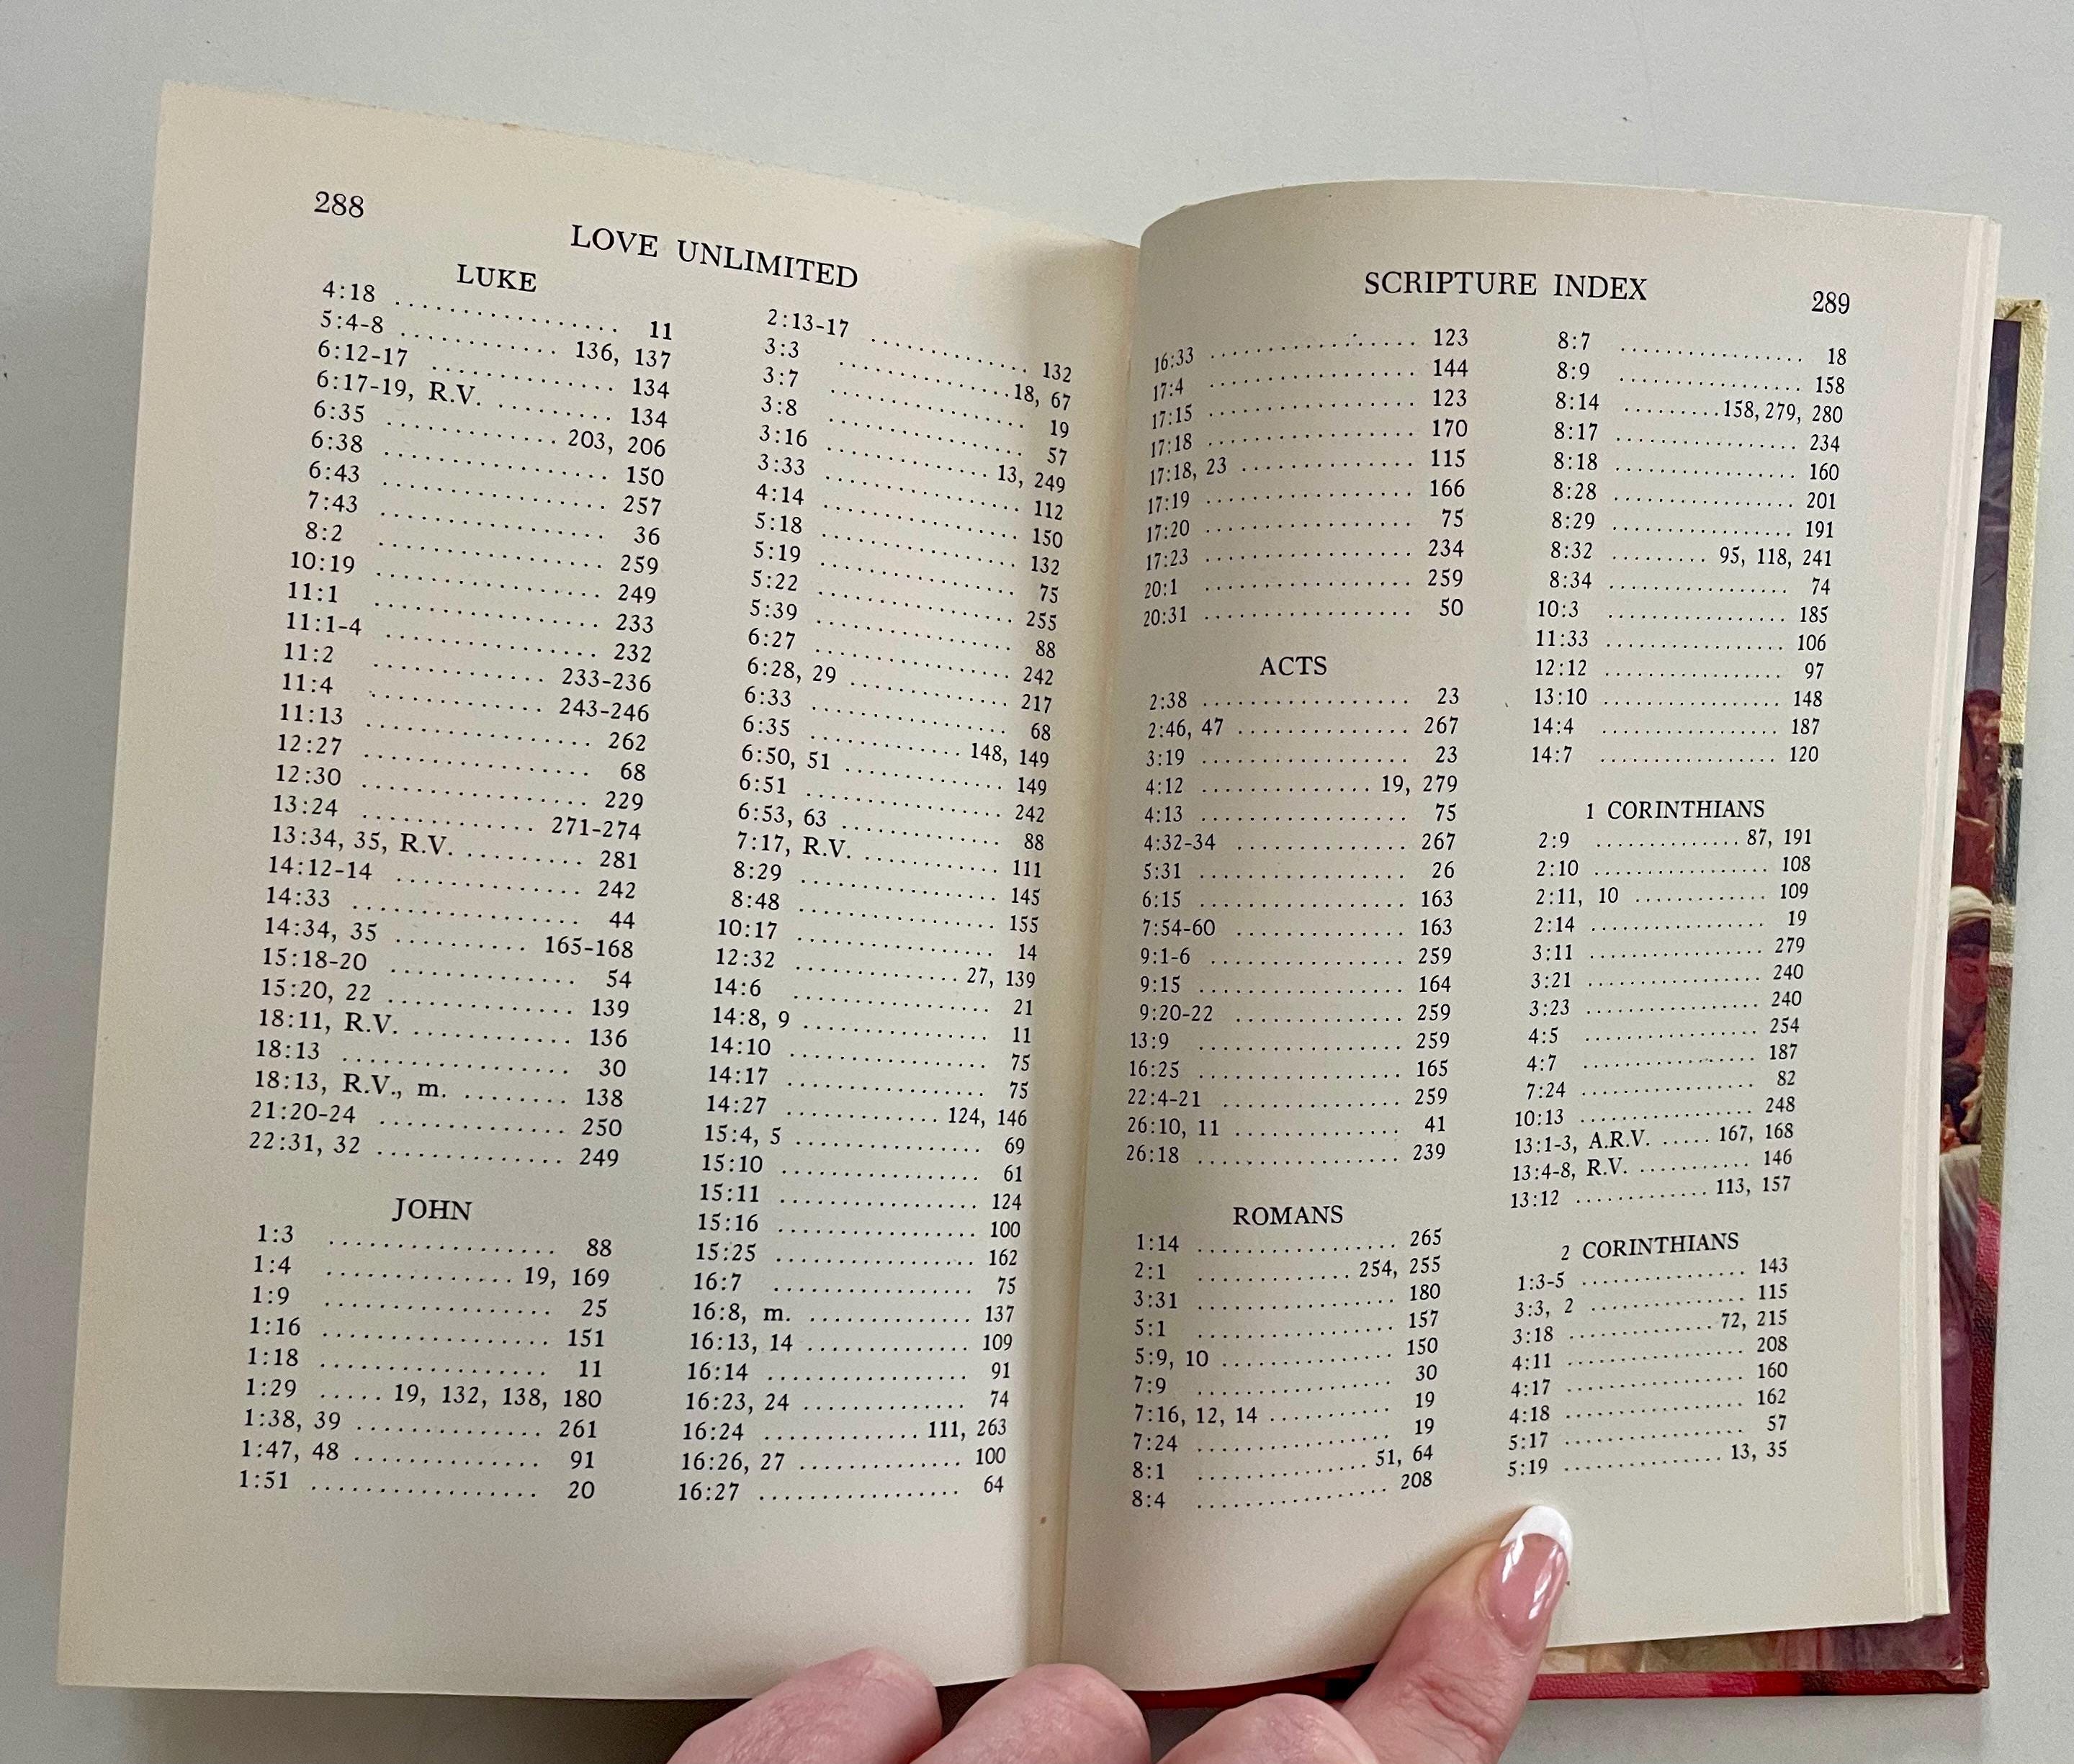 288
LOVE UNLIMITED
LUKE
4:18 ................. 11
5:4-8 ............ 136, 137
6:12-17 .............. 134
6:17-19, R.V. ......... 134
6:35 ............. 203, 206
6:38 ................. 150
6:43 ................. 257
7:43 ................. 36
8:2 ................. 259
10:19 ................. 249
11:1 ................. 233
11:1-4 ................ 232
11:2 ............. 233-236
11:4 ............. 243-246
11:13 ................. 262
12:27 ................. 68
12:30 ................. 229
13:24 ............. 271-274
13:34, 35, R.V. ......... 281
14:12-14 .............. 242
14:33 ................. 44
14:34, 35 .......... 165-168
15:18-20 .............. 54
15:20, 22 .............. 139
18:11, R.V. ............ 136
18:13 ................. 30
18:13, R.V., m. ........ 138
21:20-24 .............. 250
22:31, 32 .............. 249
JOHN
1:3 ................. 88
1:4 .............. 19, 169
1:9 ................. 25
1:16 ................. 151
1:18 ................. 11
1:29 ..... 19, 132, 138, 180
1:38, 39 .............. 261
1:47, 48 .............. 91
1:51 ................. 20
2:13-17 ............ 132
3:3 .............. 18, 67
3:7 ............... 19
3:8 ............... 57
3:16 ............. 13, 249
3:33 ............... 112
4:14 ............... 150
5:18 ............... 132
5:19 ............... 75
5:22 ............... 255
5:39 ............... 88
6:27 ............... 242
6:28, 29 ............ 217
6:33 ............... 68
6:35 ............ 148, 149
6:50, 51 ............ 149
6:51 ............... 242
6:53, 63 ............ 88
7:17, R.V. ............ 111
8:29 ............... 145
8:48 ............... 155
10:17 ............... 14
12:32 ............. 27, 139
14:6 ............... 21
14:8, 9 .............. 11
14:10 ............... 75
14:17 ............... 75
14:27 ............ 124, 146
15:4, 5 .............. 69
15:10 ............... 61
15:11 ............... 124
15:16 ............... 100
15:25 ............... 162
16:7 ............... 75
16:8, m. .............. 137
16:13, 14 ............ 109
16:14 ............... 91
16:23, 24 ............ 74
16:24 ............ 111, 263
16:26, 27 ............ 100
16:27 ............... 64
SCRIPTURE INDEX
289
16:33 ................ 123
17:4 ................ 144
17:15 ................ 123
17:18 ................ 170
17:18, 23 ............. 115
17:19 ................ 166
17:20 ................ 75
17:23 ................ 234
20:1 ................ 259
20:31 ................ 50
ACTS
2:38 ................ 23
2:46, 47 ............. 267
3:19 ................ 23
4:12 ............. 19, 279
4:13 ................ 75
4:32-34 ............. 267
5:31 ................ 26
6:15 ................ 163
7:54-60 ............. 163
9:1-6 ............... 259
9:15 ................ 164
9:20-22 ............. 259
13:9 ................ 259
16:25 ................ 165
22:4-21 .............. 259
26:10, 11 ............. 41
26:18 ................ 239
ROMANS
1:14 ................ 265
2:1 ............ 254, 255
3:31 ................ 180
5:1 ................ 157
5:9, 10 .............. 150
7:9 ................ 30
7:16, 12, 14 ........... 19
7:24 ................ 19
8:1 .............. 51, 64
8:4 ................ 208
8:7 ................ 18
8:9 ................ 158
8:14 ......... 158, 279, 280
8:17 ................ 234
8:18 ................ 160
8:28 ................ 201
8:29 ................ 191
8:32 ......... 95, 118, 241
8:34 ................ 74
10:3 ................ 185
11:33 ................ 106
12:12 ................ 97
13:10 ................ 148
14:4 ................ 187
14:7 ................ 120
1 CORINTHIANS
2:9 .............. 87, 191
2:10 ................ 108
2:11, 10 .............. 109
2:14 ................ 19
3:11 ................ 279
3:21 ................ 240
3:23 ................ 240
4:5 ................ 254
4:7 ................ 187
7:24 ................ 82
10:13 ................ 248
13:1-3, A.R.V. ..... 167, 168
13:4-8, R.V. ........... 146
13:12 ............ 113, 157
2 CORINTHIANS
1:3-5 ................ 143
3:3, 2 ............... 115
3:18 .............. 72, 215
4:11 ................ 208
4:17 ................ 160
4:18 ................ 162
5:17 ................ 57
5:19 .............. 13, 35